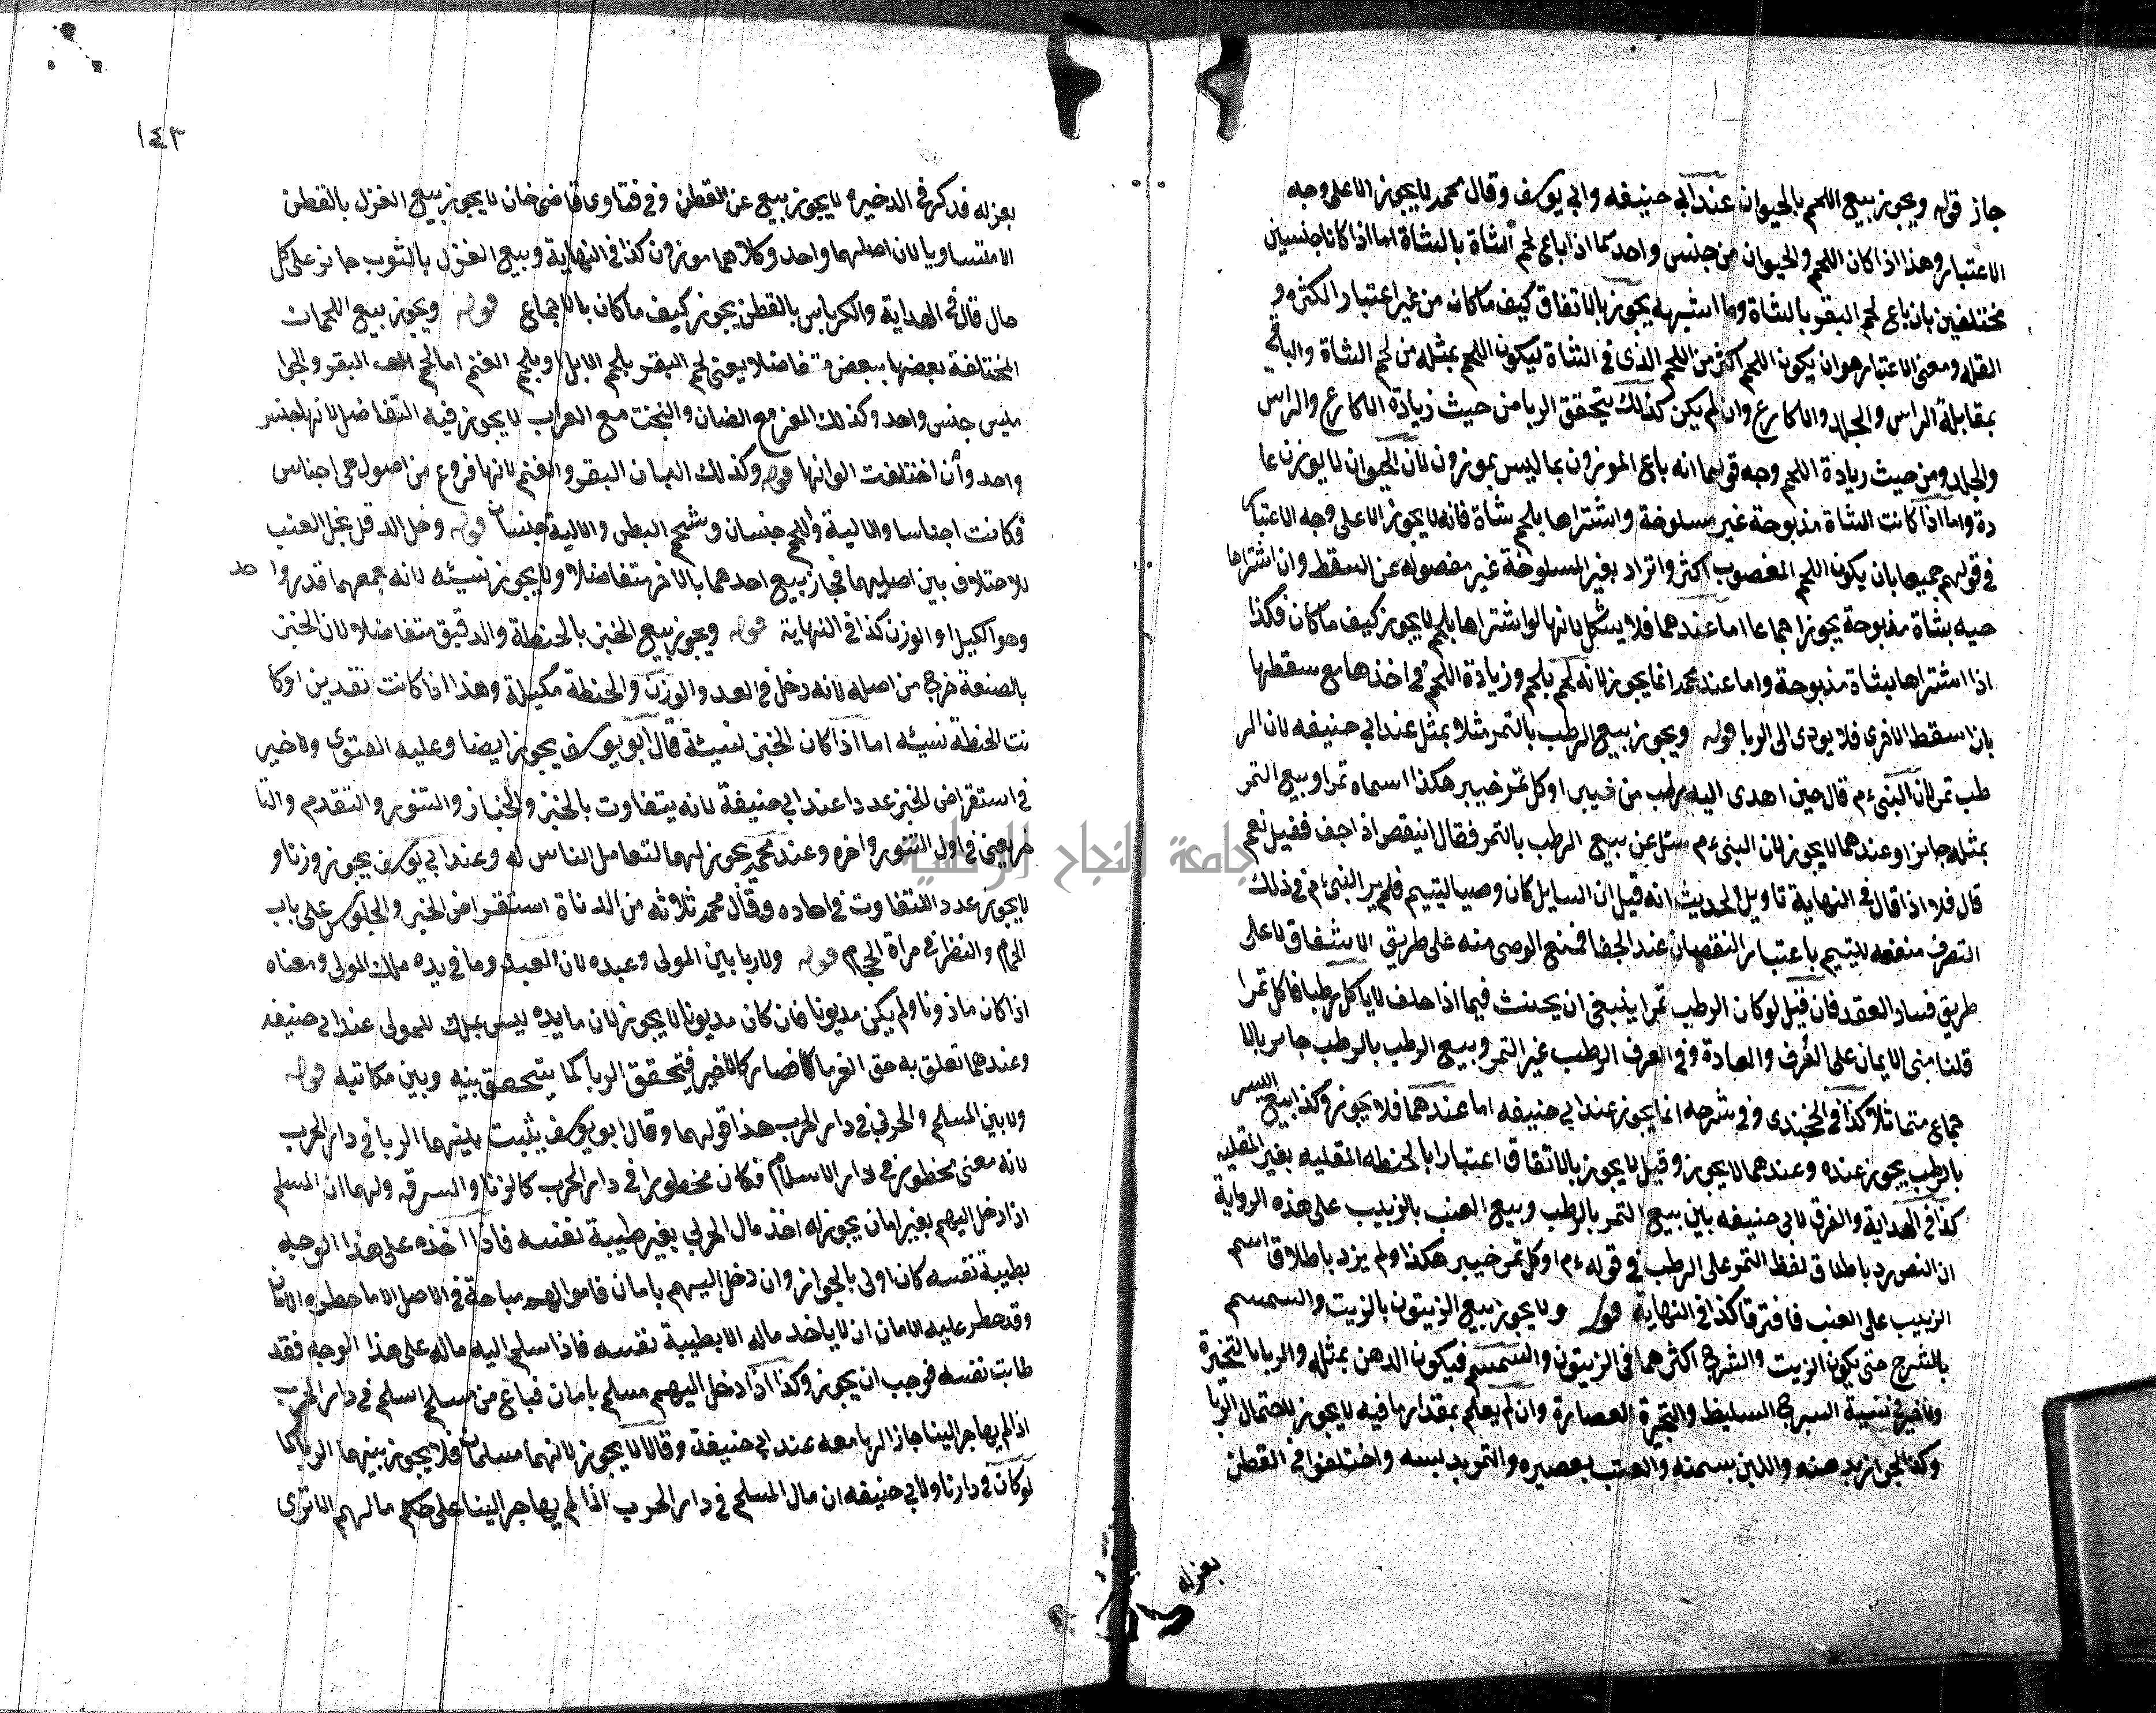 جاز قوله ويجوز بيع اللحم بالحيوان عند ابي حنيفه وابي يوسف وقال محمد لا يجوز الا على وجه
الاعتبار وهذا اذا كان اللحم والحيوان من جنس واحد كما اذا باع لحم الشاة بالشاة اما اذا كانا جنسين
مختلفين بان باع لحم البقر بالشاة وما اشبهه يجوز بالاتفاق كيف ما كان من غير اعتبار الكثره و
القله ومعنى الاعتبار هو ان يكون اللحم اكثر من اللحم الذى فى الشاة ليكون اللحم بمثله من لحم الشاة والباقى
بمقابلة الراس والجلد والاكارع وان لم يكن كذلك يتحقق الربا من حيث زيادة الاكارع والراس
والجلد ومن حيث زيادة اللحم وجه قولهما انه باع الموزون بما ليس بموزون لان الحيوان لا يوزن عا
دة واما اذا كانت الشاة مذبوحة غير مسلوخة واشتراها بلحم شاة فانه لا يجوز الا على وجه الاعتبار
فى قولهم جميعا بان يكون اللحم المفصوب اكثر واراد بغير المسلوخة غير مفصوله عن السقط وان اشتراها
حيه بشاة مذبوحة يجوز اجماعا اما عندهما فلا يشكل لانها لو اشتراها بلحم لا يجوز كيف ما كان فكذا
اذا اشتراها بشاة مذبوحة واما عند محمد انما يجوز لانه لحم بلحم وزيادة اللحم فى اخذها مع سقطها
بازاء سقط الاخرى فلا يودى الى الربا قوله ويجوز بيع الرطب بالتمر مثلا بمثل عند ابي حنيفه لان الر
طب تمر لان النبى ءم قال حين اهدى اليه رطب من خيبر اوكل تمر خيبر هكذا اسماه تمرا وبيع التمر
بمثله جائز اوعندهما لا يجوز لان النبى ءم سئل عن بيع الرطب بالتمر فقال اينقص اذا جف فقيل نعم
قال فلا اذا قال فى النهاية تاويل الحديث انه قيل ان السايل كان وصيا ليتيم فلم ير النبى ءم فى ذلك
التصرف منفعه لليتيم باعتبار النقصان عند الجفا فمنع الوصى منه على طريق الاشفاق لا على
طريق فساد العقد فان قيل لو كان الرطب تمرا ينبغى ان يحنث فيما اذا حلف لا ياكل رطبا فاكل تمرا
قلنا مبنى الايمان على العُرف والعادة وفى العرف الرطب غير التمر وبيع الرطب بالرطب جايز بالا
جماع متماثلا كذا فى الخجندى وفى شرحه انما يجوز عند ابي حنيفه اما عندهما فلا يجوز وكذا بيع البسر
بالرطب يجوز عنده وعندهما لا يجوز وقيل لا يجوز بالاتفاق اعتبارا بالحنطه المقليه بغير المقليه
كذا فى الهداية والفرق لابي حنيفه بين بيع التمر بالرطب وبيع العنب بالزبيب على هذه الرواية
ان النص ورد باطلاق لفظ التمر على الرطب فى قوله ءم اوكل تمر خيبر هكذا ولم يرد باطلاق اسم
الزبيب على العنب فافترقا كذا فى النهاية قوله ولا يجوز بيع الزيتون بالزيت والسمسم
بالشيرج حتى يكون الزيت والشيرج اكثر مما فى الزيتون والسمسم فيكون الدهن بمثله والربا بالثجيرة
السيرج السليط والثجيرة العصارة وان لم يعلم بمقدار ما فيه لا يجوز لاحتمال الربا
وكذا الجوز بدهنه واللبن بسمنه والعنب بعصيره والتمر بدبسه واختلفوا فى القطن
بغزله
١٤٣
بغزله فذكر فى الدخيره لا يجوز بيع غزل القطن وفى فتاوى قاضى خان لا يجوز بيع الغزل بالقطن
الا متساويا لان اصلهما واحد وكلاهما موزون كذا فى النهاية وبيع الغزل بالثوب جائز على كل
حال قال فى الهداية والكرباس بالقطن يجوز كيف ما كان بالاجماع قوله ويجوز بيع اللحمان
المختلفة بعضها ببعض متفاضلا يعنى لحم البقر بلحم الابل او بلحم الغنم اما لحم البقر والجوا
ميس جنس واحد وكذلك المعز مع الضان والبخت مع العراب لا يجوز فيه التفاضل لانها جنس
واحد وان اختلفت الوانها قوله وكذلك البان البقر والغنم لانها فروع من اصول هى اجناس
فكانت اجناسا والالية واللحم جنسان وشحم البطن والالية جنسان قوله وخل الدقل بخل العنب
للاختلاف بين اصليهما فجاز بيع احدهما بالاخر متفاضلا ولا يجوز نسيئه لانه جمعهما قدر واحد
وهو الكيل او الوزن كذا فى النهاية قوله ويجوز بيع الخبز بالحنطة والدقيق متفاضلا لان الخبز
بالصنعة خرج من اصله لانه دخل فى العد والوزن والحنطة مكيلة وهذا اذا كانت نقدين او كا
نت الحنطة نسيئه اما اذا كان الخبز نسيئة قال ابو يوسف يجوز ايضا وعليه الفتوى ولا خير
فى استقراض الخبز عددا عند ابي حنيفة لانه يتفاوت بالخبز والخباز والتنور والتقدم والتا
خر يعنى فى اول التنور واخره وعند محمد يجوز لهما لتعامل الناس له وعند ابي يوسف يجوز وزنا و
لا يجوز عددا للتفاوت فى احاده وقال محمد ثلاثه من الدناة استقراض الخبز والجلوس على باب
الحمام والنظر فى مراة الحجام قوله ولا ربا بين المولى وعبده لان العبد وما فى يده ملك المولى ومعناه
اذا كان ماذونا ولم يكن مديونا فان كان مديونا لا يجوز لان ما بيده ليس بملك للمولى عند ابي حنيفه
وعندهما تعلق به حق الغرما فصار كالاخير فتحقق الربا كما يتحقق بينه وبين مكاتبه قوله
ولا بين المسلم والحربى فى دار الحرب هذا قولهما وقال ابو يوسف يثبت بينهما الربا فى دار الحرب
لانه معنى محظور فى دار الاسلام فكان محظورا فى دار الحرب كالزنا والسرقه ولهما ان المسلم
اذا دخل اليهم بغير امان يجوز له اخذ مال الحربي بغير طيبة نفسه فاذا اخذه على هذا الوجه
بطيبة نفسه كان اولى بالجواز وان دخل اليهم بامان فاموالهم مباحة فى الاصل الا ما حظره الامان
وقد حظر عليه الامان ان لا ياخد ماله الا بطيبة نفسه فاذا سلم اليه ماله على هذا الوجه فقد
طابت نفسه فوجب ان يجوز وكذا اذا دخل اليهم مسلم بامان فباع من مسلم اسلم فى دار الحرب
اذا لم يهاجر الينا جاز الربا معه عند ابي حنيفة وقالا لا يجوز لانهما مسلمان فلا يجوز بينهما الربا كما
لو كان فى دارنا ولابي حنيفه ان مال المسلم فى دار الحرب اذا لم يهاجر الينا على حكم مالهم الا ترى
جامعة النجاح الوطنية